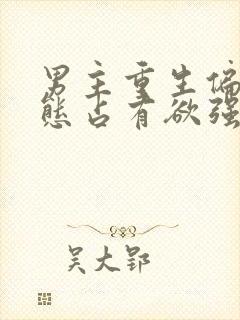 男主重生偏
态占有欲强
吴大郢